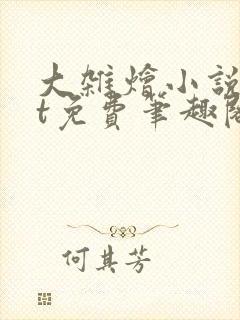 大雜燴小說
t免費筆趣閣
何其芳